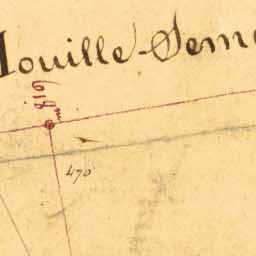 Houille-Seme
618m
470